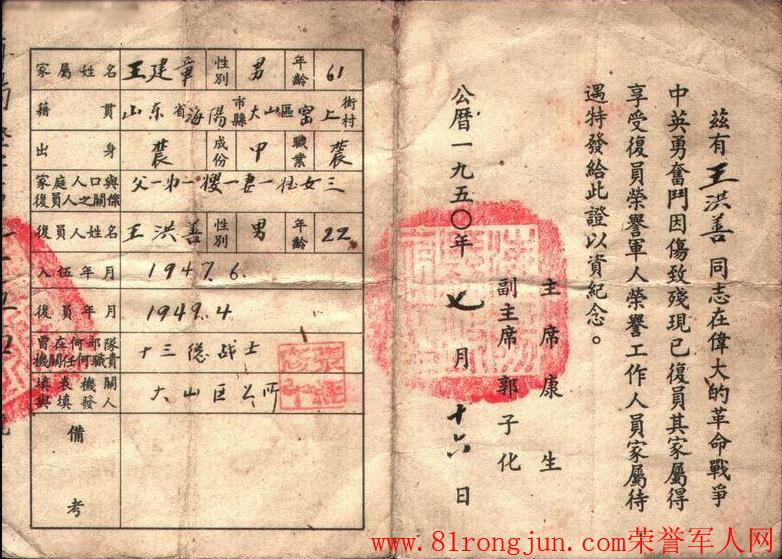 兹有王洪善同志在偉大的革命戰爭
中英勇奮鬥因傷致殘現已復員其家屬得
享受復員榮譽軍人榮譽工作人員家屬待
遇特發給此證以資紀念。
主席康生
副主席郭子化
公曆一九五〇年七月十六日
家屬姓名 王建章 性別 男 年齡 61
籍貫 山东省海陽市縣大山區窑上街村
出身 農 成份 中 職業 農
家庭人口與復員人之關係 父一弟一
妻一 女三
復員人姓名 王洪善 性別 男 年齡 22
入伍年月 1947.6.
復員年月 1949.4.
曾在何部隊機關任何職責 十三总战士
填表機關與填發人 大山区公所
備考
www.81rongjun.com荣誉军人网